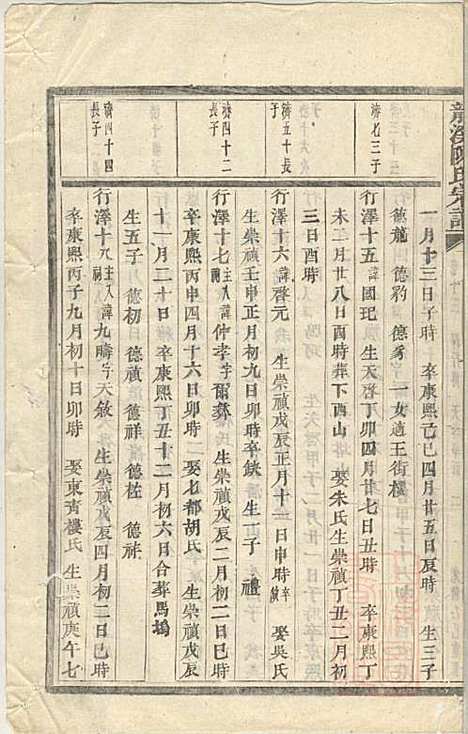 龍溪陳氏宗譜
一月十三日子時 卒康熙己巳四月廿五日辰時 生三子
德龍 德豹 德 一女適王街樓
濟七三子
行澤十五諱國玘 生天啓丁卯四月廿七日丑時 卒康熙丁
未三月廿八日酉時葬下西山 娶朱氏生崇禎丁丑二月初
三日酉時
濟五十長子
行澤十六諱啓元 生崇禎戊辰正月十一日申時卒 娶吳氏
生崇禎壬申正月初九日卯時卒 生一子 禮
濟四十二長子
行澤十七主入諱仲孝字爾彝 生崇禎戊辰二月初二日巳時
卒康熙丙申四月十六日卯時 娶七都胡氏 生崇禎戊辰
十一月二十日 卒康熙丁丑十二月初六日合葬馬塢
生五子 德初 德禎 德祥 德 德祥
濟四十四長子
行澤十八主入祠諱九疇字天敘 生崇禎戊辰四月初二日巳時
卒康熙丙子九月初十日卯時 娶東青樓氏 生崇禎庚午七